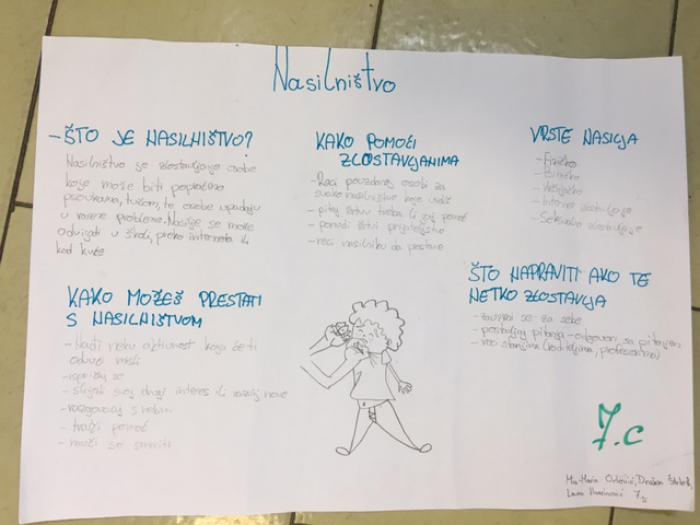 Nasilništvo
-ŠTO JE NASILNIŠTVO?
Nasilništvo je zlostavljanje osobe
koje može biti popraćeno
psovkama, tučom, te osobe upadaju
u razne probleme. Nasilje se može
odvijati u školi, preko interneta ili
kod kuće
KAKO MOŽEŠ PRESTATI
S NASILNIŠTVOM
- Nađi neku aktivnost koja će ti
odvući misli
- ispričaj se
- slijedi svoj drugi interes ili razvij nove
- razgovaraj s nekim
- traži pomoć
- nauči se smiriti
KAKO POMOĆI
ZLOSTAVLJANIMA
- Reci pouzdanoj osobi za
svako nasilništvo koje vidiš
- pitaj žrtvu treba li joj pomoć
- ponudi žrtvi prijateljstvo
- reci nasilniku da prestane
VRSTE NASILJA
- Fizičko
- Psihičko
- Internet zlostavljanje
- Seksualno zlostavljanje
ŠTO NAPRAVITI AKO TE
NETKO ZLOSTAVLJA
- zauzmi se za sebe
- postavljaj pitanja - odgovori sa pitanjem
- reci starijima (roditeljima, profesorima)
7.c
Mia-Maria
Laura 7.c